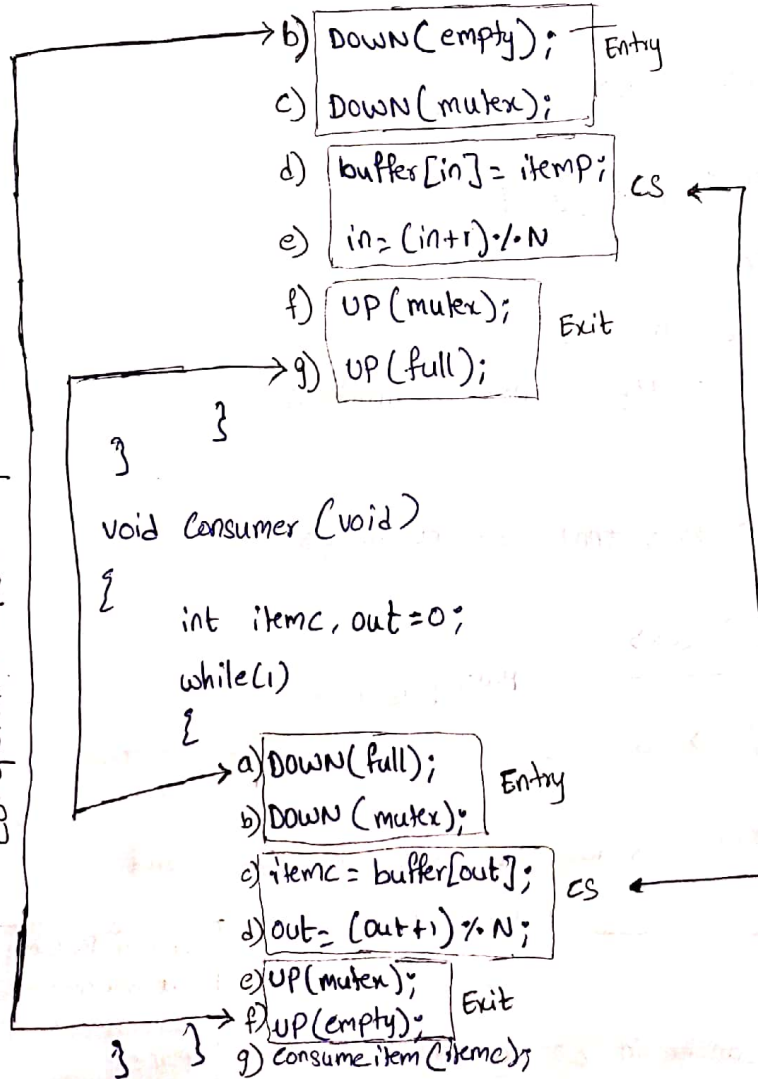 b) DOWN(empty); Entry
c) DOWN(mutex);
d) buffer[in] = itemp; CS
e) in = (in+1)%N
f) UP(mutex); Exit
g) UP(full);
}
}
void Consumer (void)
{
int itemc, out = 0;
while(1)
{
a) DOWN(full); Entry
b) DOWN(mutex);
c) itemc = buffer[out]; CS
d) out = (out+1)%N;
e) UP(mutex); Exit
f) UP(empty);
g) Consumeitem(itemc);
} }